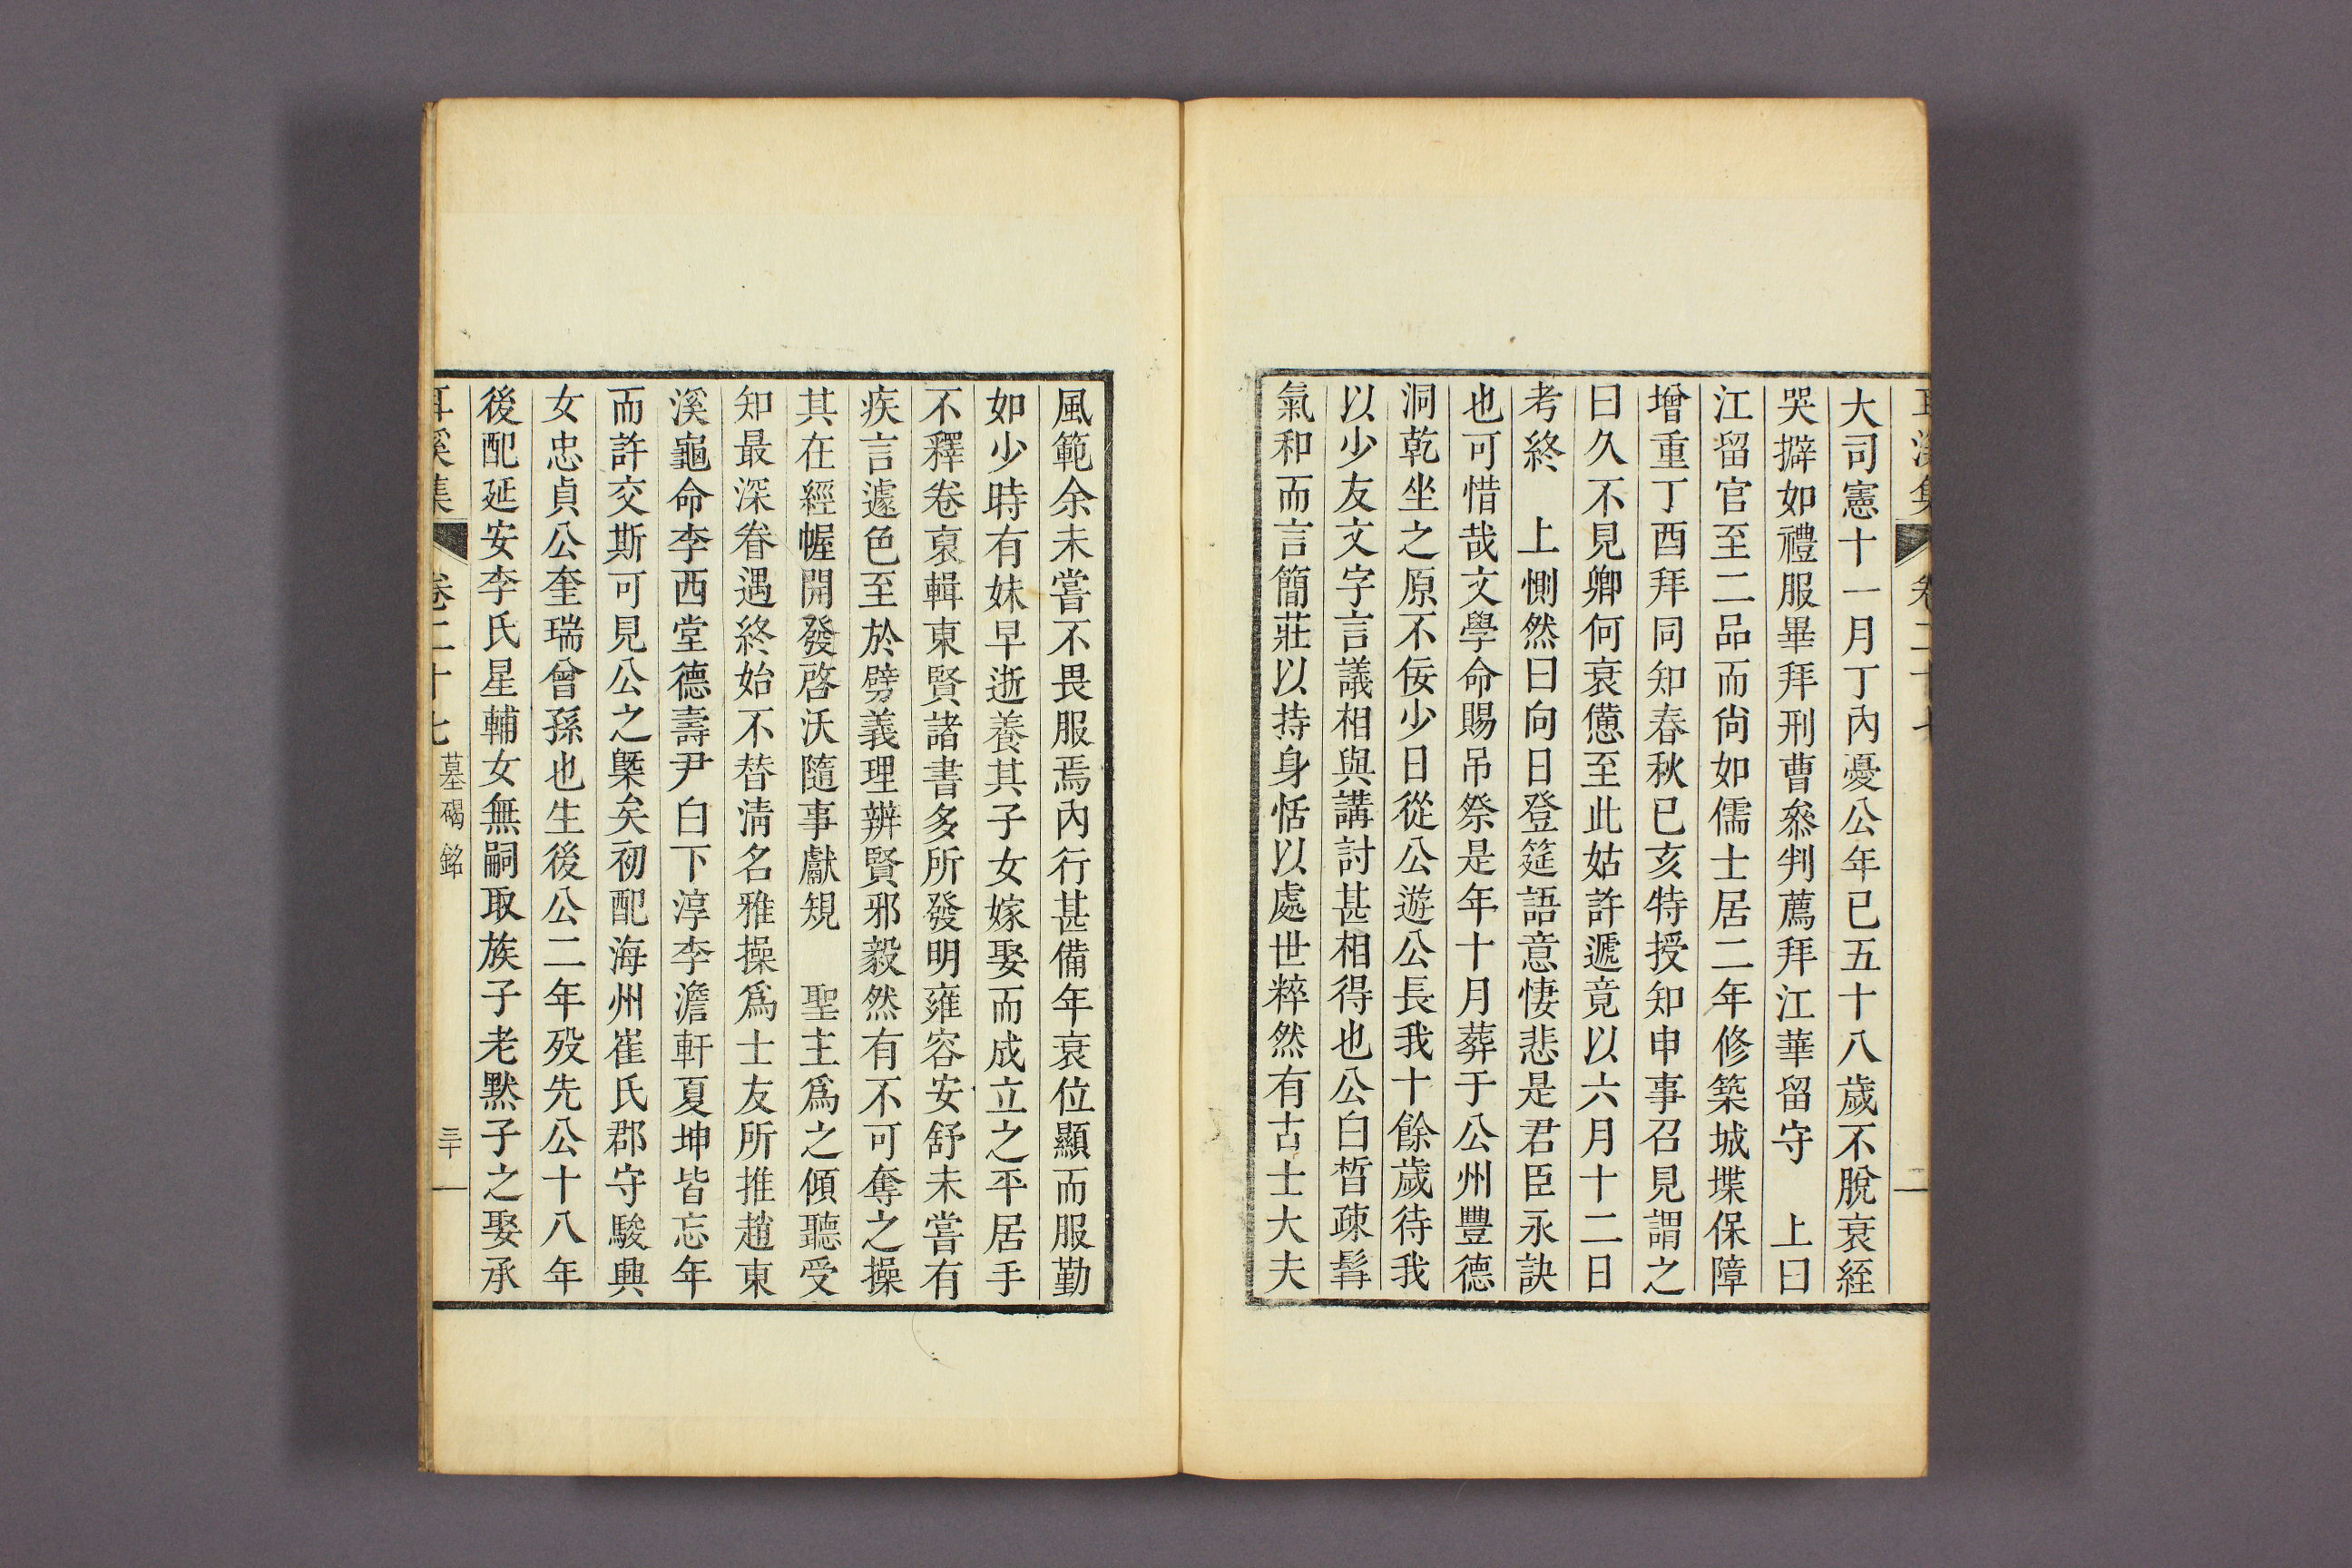 大司憲十一月丁內憂公年已五十八歲不脫衰絰
哭擗如禮服畢拜刑曹叅判薦拜江華留守　上曰
江留官至二品而尙如儒士居二年修築城堞保障
增重丁酉拜同知春秋己亥特授知申事召見謂之
曰久不見卿何衰憊至此姑許遞竟以六月十二日
考終　上惻然曰向日登筵語意悽悲是君臣永訣
也可惜哉文學命賜吊祭是年十月葬于公州豐德
洞乾坐之原不佞少日從公遊公長我十餘歲待我
以少友文字言議相與講討甚相得也公白晳疎髯
氣和而言簡莊以持身恬以處世粹然有古士大夫
風範余未嘗不畏服焉內行甚備年衰位顯而服勤
如少時有妹早逝養其子女嫁娶而成立之平居手
不釋卷裒輯東賢諸書多所發明雍容安舒未嘗有
疾言遽色至於劈義理辨賢邪毅然有不可奪之操
其在經幄開發啓沃隨事獻規　聖主爲之傾聽受
知最深眷遇終始不替淸名雅操爲士友所推趙東
溪龜命李西堂德壽尹白下淳李澹軒夏坤皆忘年
而許交斯可見公之槩矣初配海州崔氏郡守駿興
女忠貞公奎瑞曾孫也生後公二年歿先公十八年
後配延安李氏星輔女無嗣取族子老默子之娶承
耳溪集　卷二十七　墓碣銘　三十